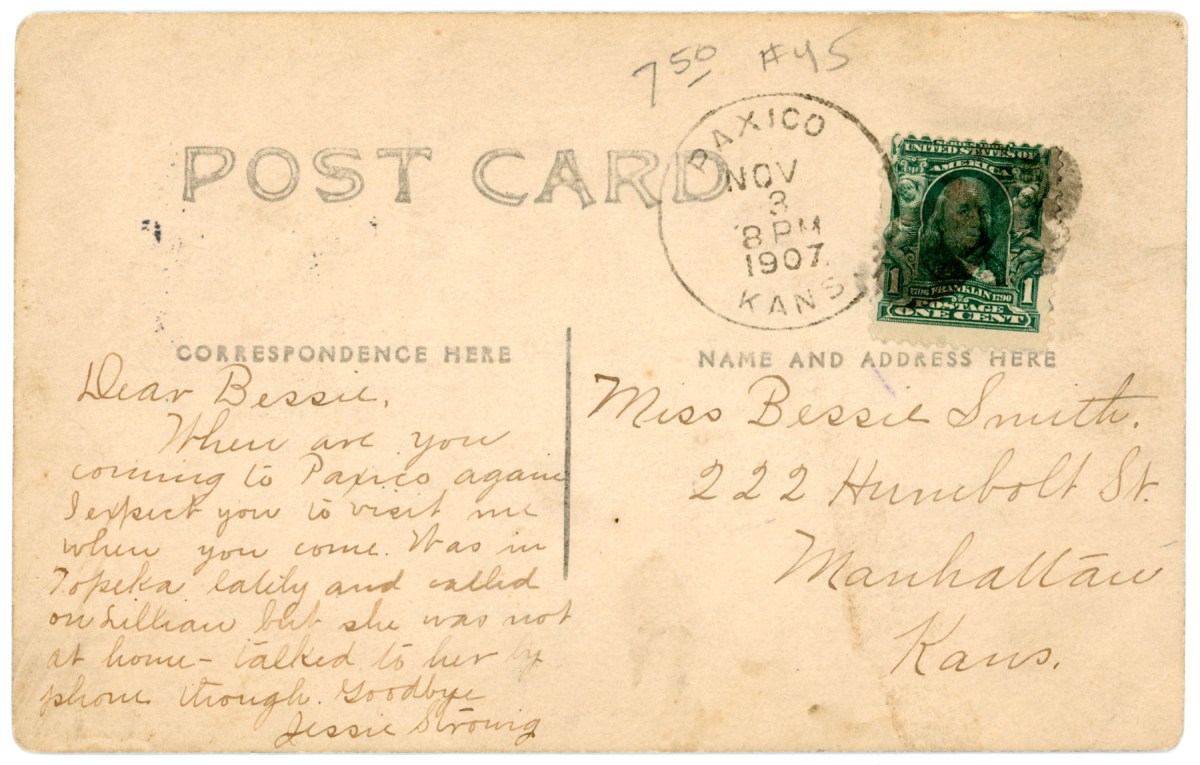 7 50 #45
POST CARD
PAXICO
NOV
3
8 PM
1907
KANS
SERIES 1902
UNITED STATES OF
AMERICA
1 1706 FRANKLIN 1790 1
POSTAGE
ONE CENT
CORRESPONDENCE HERE
Dear Bessie,
When are you
coming to Paxico again
I expect you to visit me
when you come. Was in
Topeka lately and called
on Lillian but she was not
at home - talked to her by
phone though. Goodbye
Jessie Strowig
NAME AND ADDRESS HERE
Miss Bessie Smith.
222 Humbolt St.
Manhattan
Kans.